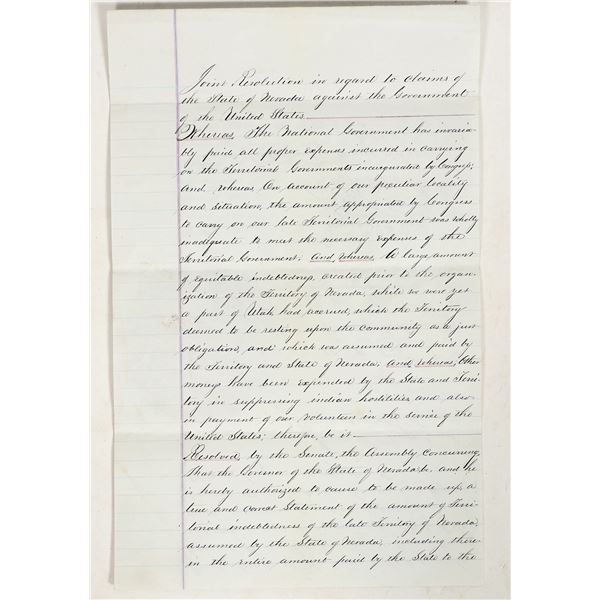 Joint Resolution in regard to claims of
the State of Nevada against the Government
of the United States.
Whereas, The National Government has invaria-
bly paid all proper expenses incurred in carrying
on the Territorial Governments inaugurated by Congress;
and whereas On account of our peculiar locality
and situation, the amount appropriated by Congress
to carry on our late Territorial Government was wholly
inadequate to meet the necessary expenses of the
Territorial Government; And, whereas, A large amount
of equitable indebtedness, created prior to the organ-
ization of the Territory of Nevada, while we were yet
a part of Utah had accrued, which the Territory
deemed to be resting upon the community as a just
obligation, and which was assumed and paid by
the Territory and State of Nevada; And, whereas, Other
moneys have been expended by the State and Terri-
tory in suppressing indian hostilities and also
in payment of our volunteers in the service of the
United States; therefore, be it
Resolved, by the Senate, the Assembly concurring,
That the Governor of the State of Nevada be, and he
is hereby authorized to cause to be made up, a
true and correct Statement of the amount of Terri-
torial indebtedness of the late Territory of Nevada,
assumed by the State of Nevada, including there-
in the entire amount paid by the State to the